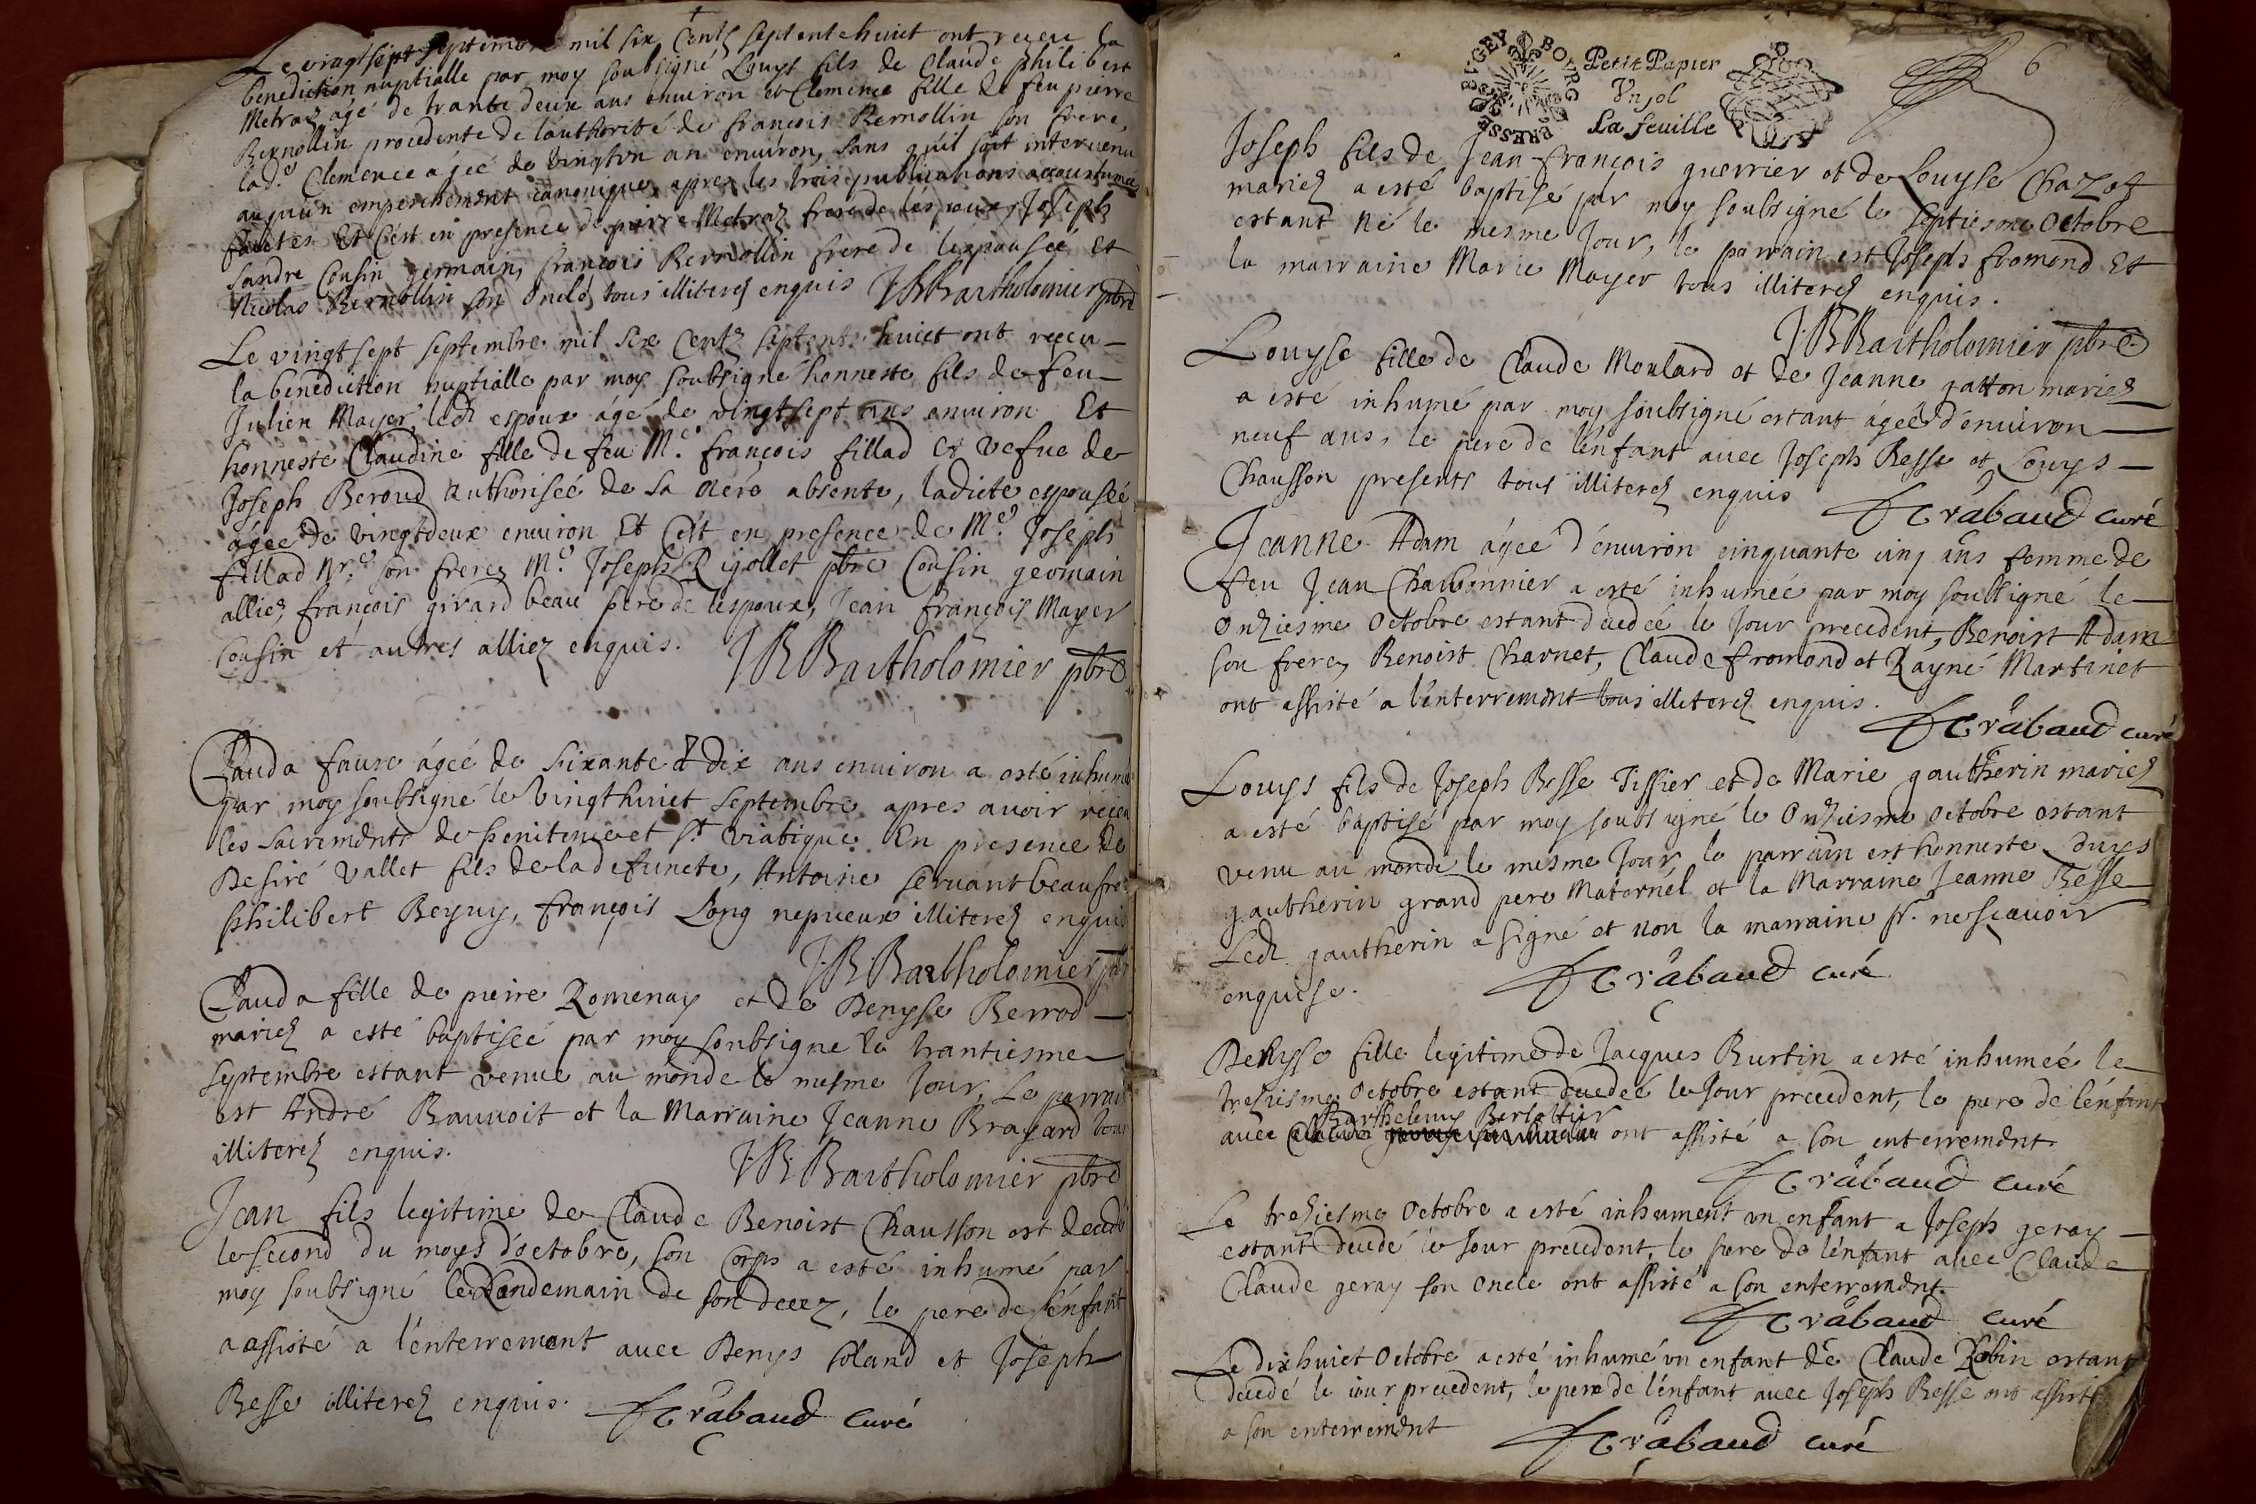 Le vingt sept septembre mil six Centz septente huict ont receu la
benediction nuptialle par moy soubsigné Louys fils de Claude philibert
Metraz âgé de trante deux ans enuiron et Clemence fille de feu pierre
Bernollin procedente de l'authorité de françois Bernollin son frere,
lad.e Clemence âgée de vingtvn an enuiron, sans qu'il soit interuenu
auqu'un empeschement canonique, apres les trois publications accoustumées
faictes Et c'est en presence de pierre Metraz frere de l'espoux, Joseph
Sandre Cousin germain, françois Bernollin frere de l'espousée, Et
Nicolas Bernollin son Oncle, tous illiterez enquis JBBartholomier pbre
Le vingt sept septembre mil six Centz septente huict ont receu
la benediction nuptialle par moy soubsigné honneste fils de feu
Julien Mayer, led. espoux âgé de vingt sept ans anuiron Et
honneste Claudine fille de feu M.e françois fillad et vefue de
Joseph Beroud authorisée de sa mere absente, ladicte espousée
âgée de vingtdeux enuiron Et c'est en presence de M.e Joseph
fillad Nre. son frere, M.e Joseph Rigollet pbre Cousin germain
alliez, françois girard beau pere de lespoux, Jean françois Mayer
Cousin et autres alliez enquis. JBBartholomier pbre
Clauda faure âgée de soixante & dix ans enuiron a esté inhumée
par moy soubsigné le vingthuict septembre apres auoir receu
les sacrements de penitence et st viatique. En presence de
Desiré Vallet fils de la defuncte, Antoine seruant beaufre
philibert Beyuy, françois Long nepueux illiterez enquis
J.B.Bartholomier pbr
Clauda fille de pierre Romenay et de Denyse Berrod
mariez a esté baptisée par moy soubsigne le trantiesme
septembre estant venue au monde le mesme Jour, Le parrain
est André Bauuoit et la Marraine Jeanne Brayard tous
illiterez enquis. J.B.Bartholomier pbre
Jean fils legitime de Claude Benoist Chausson est decedé
le second du moys d'octobre, son corps a esté inhumé par
moy soubsigné le Landemain de son decez, le pere de l'enfant
a assisté a l'enterrement auec Denys Coland et Joseph
Besse illiterez enquis. Trabaud curé
BOVRG BRESSE BVGEY
Petit Papier
Vn sol
La feuille
6
Joseph fils de Jean françois guerrier et de Louyse Chazot
mariez a esté baptisé par moy soubsigné le septiesme Octobre
estant né le mesme Jour, le parrain est Joseph fromond Et
la marraine Marie Mayer tous illiterez enquis.
J.BBartholomier pbre
Louyse fille de Claude Moulard et de Jeanne gatton mariez
a esté inhumé par moy soubsigné estant âgée d'enuiron
neuf ans, le pere de l'enfant auec Joseph Besse et Louys
Chausson presents tous illiterez enquis Trabaud curé
Jeanne Adam âgée d'enuiron cinquante cinq ans femme de
feu Jean Charbonnier a esté inhumée par moy soubsigné le
Onziesme Octobre estant decedée le Jour precedent, Benoist Adam
son frere, Benoist Charnet, Claude fromond et Rayné Martinet
ont assisté a l'enterrement tous illiterez enquis.
Trabaud curé
Louys fils de Joseph Besse Tissier et de Marie gautherin mariez
a esté baptisé par moy soubsigné le Onziesme octobre estant
venu au monde le mesme Jour, le parrain est honneste Ouys
gautherin grand pere Maternel et la Marraine Jeanne Besse
Led. gautherin a signé et non la marraine pr. ne sçauoir
enquise. Trabaud curé
Denyse fille legitime de Jacques Burtin a esté inhumée le
treziesme Octobre estant decedée le Jour precedent, le pere de l'enfant
Barthelemy Berlottier
auec ont assisté a son enterrement.
Trabaud curé
Le treziesme Octobre a esté inhument vn enfant a Joseph geray
estant decedé le Jour precedent, le pere de l'enfant auec Claude
Claude geray son Oncle ont assisté a son enterrement.
Trabaud curé
Le dixhuict Octobre a esté inhumé vn enfant de Claude Robin estant
decedé le iour precedent, le pere de l'enfant auec Joseph Besse ont assisté
a son enterrement Trabaud curé